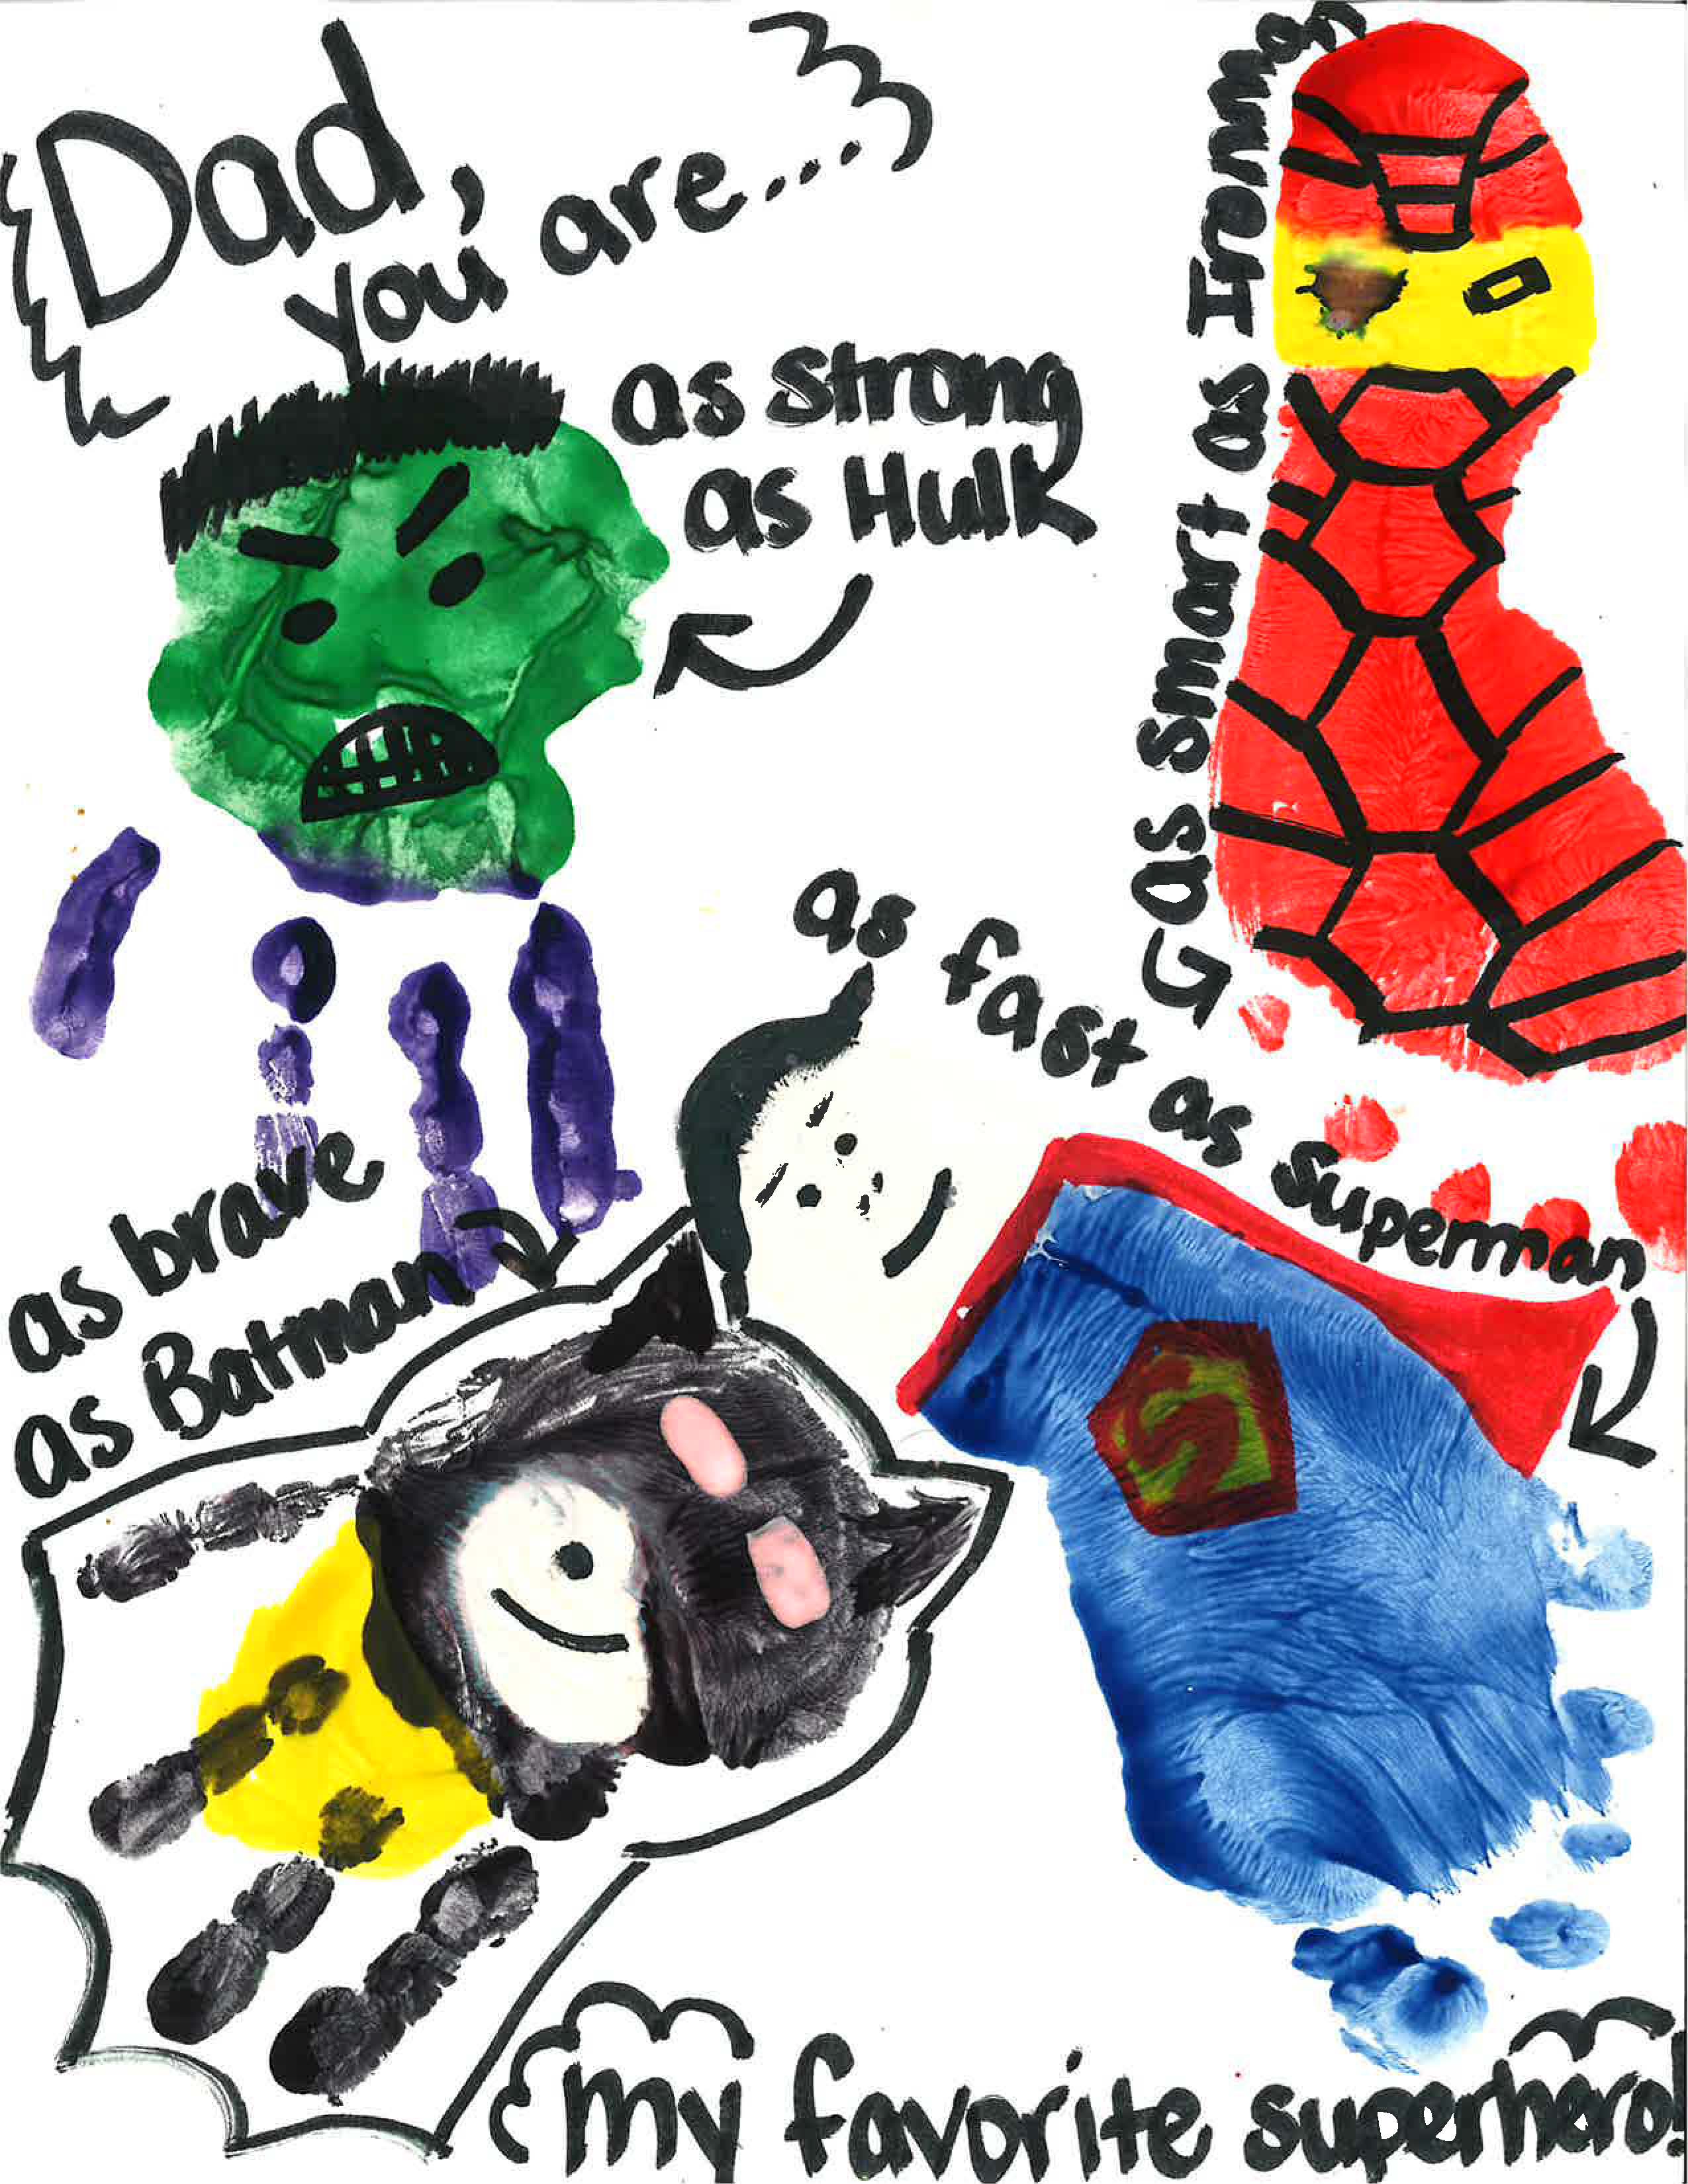 Dad,
you are...
as strong
as Hulk
as smart as Ironman
as fast as Superman
as brave
as Batman
my favorite superhero!